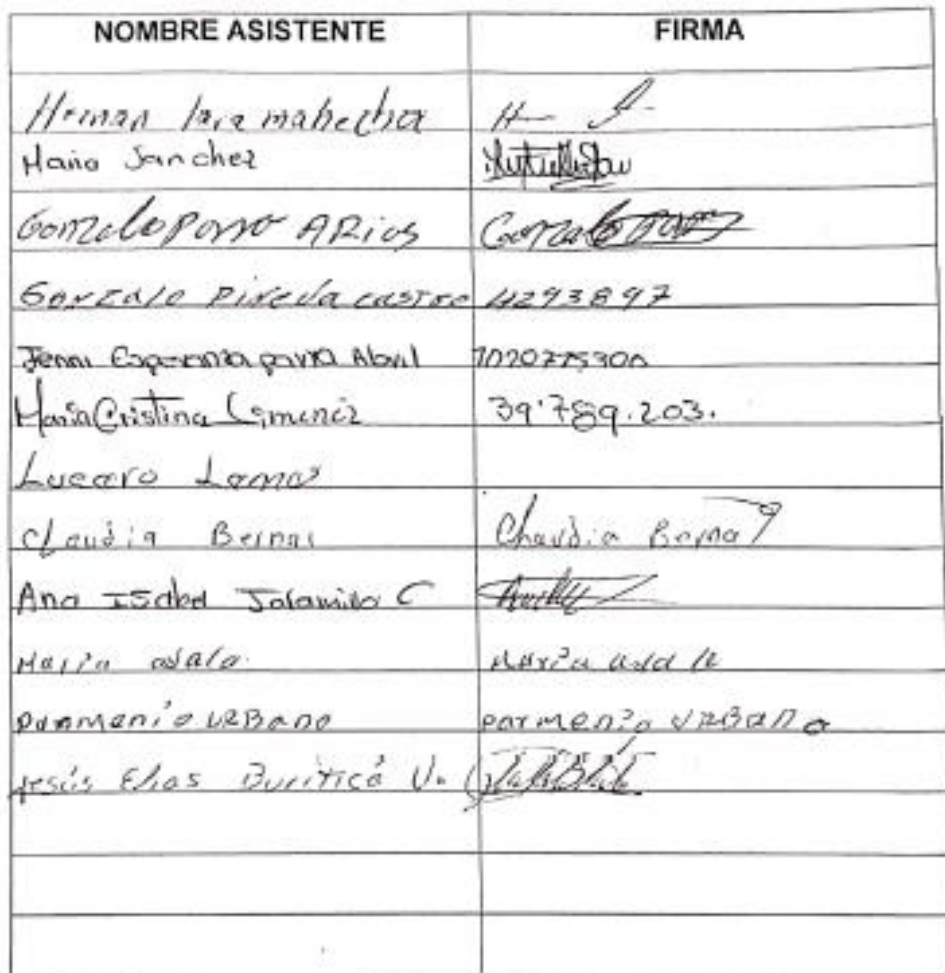 NOMBRE ASISTENTE FIRMA
Hernan Lara mahecha
Maria Sanchez
Gonzalo Parra ARias Gonzalo
Gonzalo Pineda castro 4293897
Jenni Esperanza parra Abril 1020775300
Maria Cristina Jimenez 39'789.203.
Lucero Lamos
Claudia Bernal Claudia Bernal
Ana ISabel Jaramillo C
Maria ayala Maria ayala
parmenio URBano parmenio URBano
Jesús Elias Buriticá V.